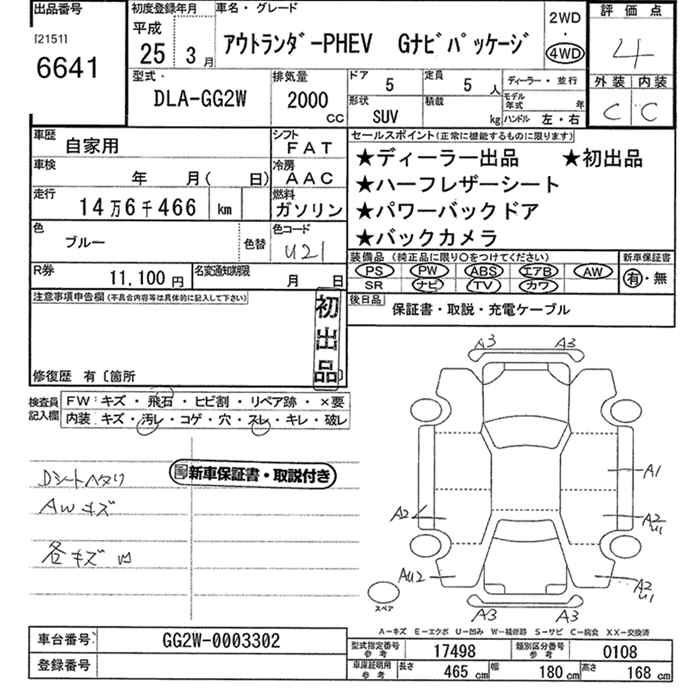 出品番号
[2151]
6641
初度登録年月
平成
25年3月
車名・グレード
アウトランダ゙ーPHEV Gナビパッケージ
2WD
・
4WD
評価点
4
外装 内装
C C
型式
DLA-GG2W
排気量
2000 CC
ドア 5
定員 5人
形状 SUV
積載 kg
ディーラー・並行
モデル年式 年
ハンドル 左・右
車歴 自家用
シフト FAT
車検 年 月( 日)
冷房 AAC
走行 14万6千466 km
燃料 ガソリン
色 ブルー
色替
色コード U21
R券 11,100円
名変通知期限 月 日
セールスポイント(正常に機能するものに限ります)
★ディーラー出品 ★初出品
★ハーフレザーシート
★パワーバックドア
★バックカメラ
装備品(純正品に限り○をつけてください)
新車保証書
PS PW ABS エアB AW
SR ナビ TV カワ
有・無
後日品 保証書・取説・充電ケーブル
注意事項申告欄(不具合内容等は具体的に記入して下さい)
初出品
修復歴 有〔箇所 〕
検査員記入欄
FW:キズ・飛石・ヒビ割・リペア跡・×要
内装・キズ・汚レ・コゲ・穴・スレ・キレ・破レ
新車保証書・取説付き
Dシートヘタリ
AWキズ
各キズ凹
A3 A3
A1
A2
A2 U1
AU2
A2 U1
A3 A3
スペア
A−キズ E−エクボ U−凹み W−補修跡 S−サビ C−腐食 XX−交換済
車台番号 GG2W-0003302
登録番号
型式指定番号参考 17498
類別区分番号参考 0108
車庫証明用参考 長さ 465cm 幅 180cm 高さ 168cm